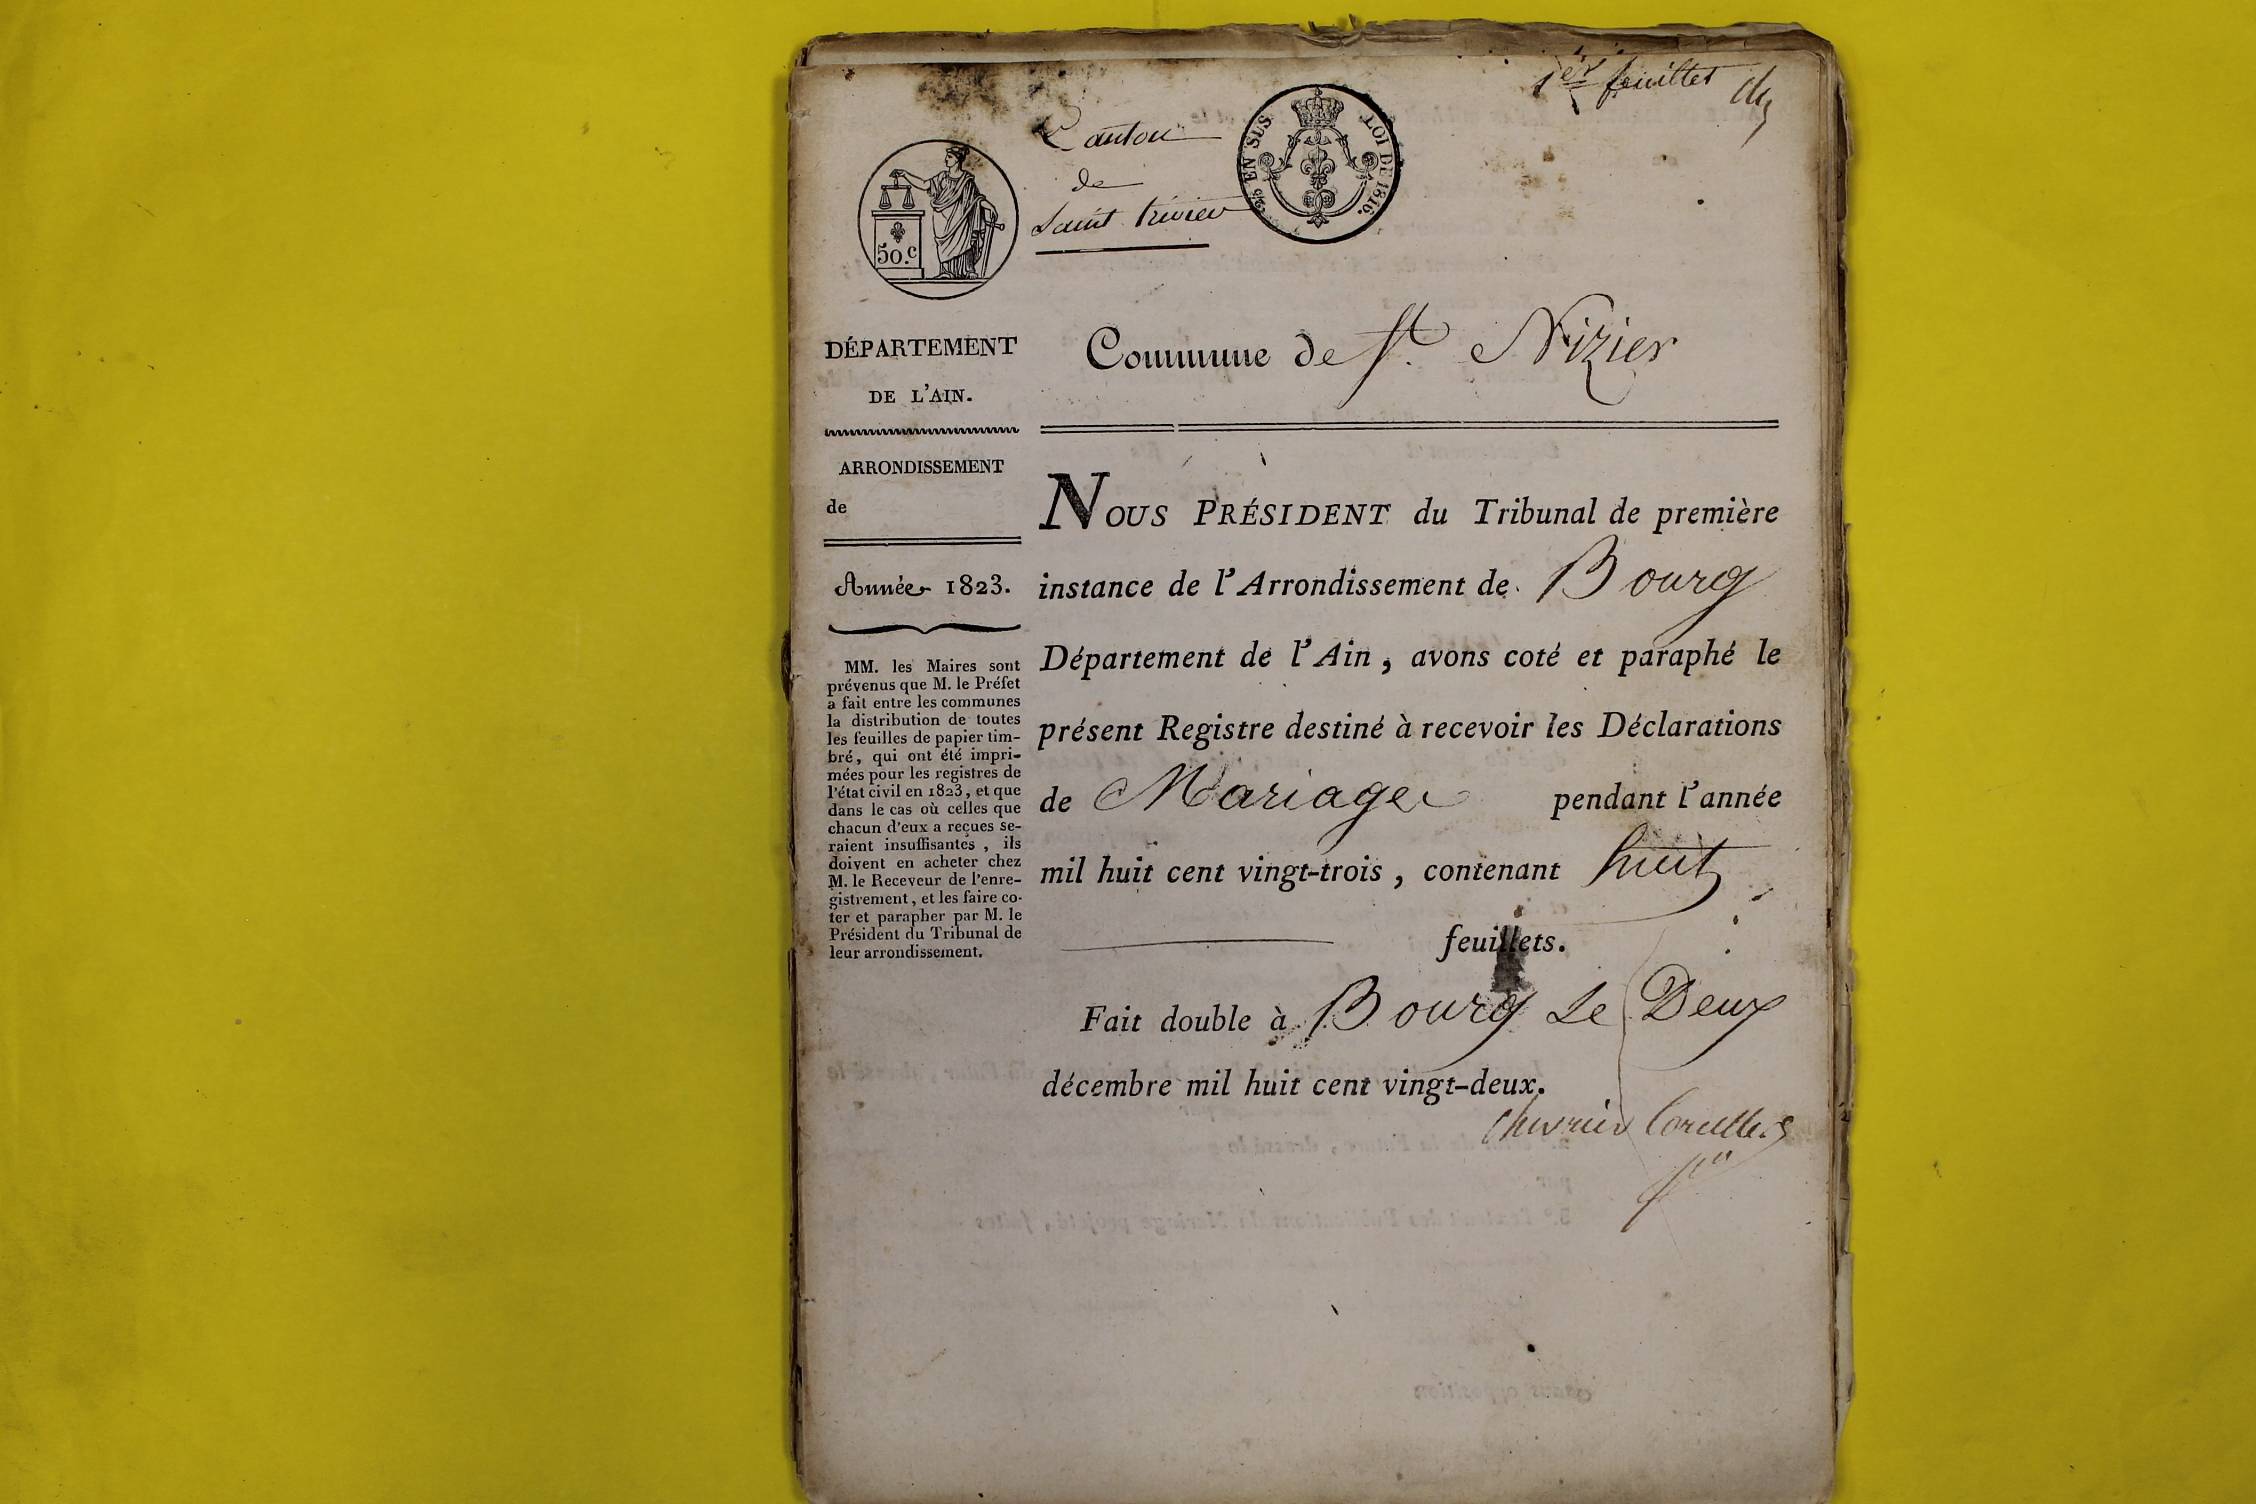 1er feuillet
Canton
de
Saint Trivier
2/5 EN SUS. LOI DE 1816.
50.c
DÉPARTEMENT
DE L'AIN.
Commune de St. Nizier
ARRONDISSEMENT
de
Année 1823.
MM. les Maires sont
prévenus que M. le Préfet
a fait entre les communes
la distribution de toutes
les feuilles de papier tim-
bré, qui ont été impri-
mées pour les registres de
l'état civil en 1823, et que
dans le cas où celles que
chacun d'eux a reçues se-
raient insuffisantes, ils
doivent en acheter chez
M. le Receveur de l'enre-
gistrement, et les faire co-
ter et parapher par M. le
Président du Tribunal de
leur arrondissement.
NOUS PRÉSIDENT du Tribunal de première
instance de l'Arrondissement de Bourg
Département de l'Ain, avons coté et paraphé le
présent Registre destiné à recevoir les Déclarations
de Mariage pendant l'année
mil huit cent vingt-trois, contenant huit
feuillets.
Fait double à Bourg Le Deux
décembre mil huit cent vingt-deux.